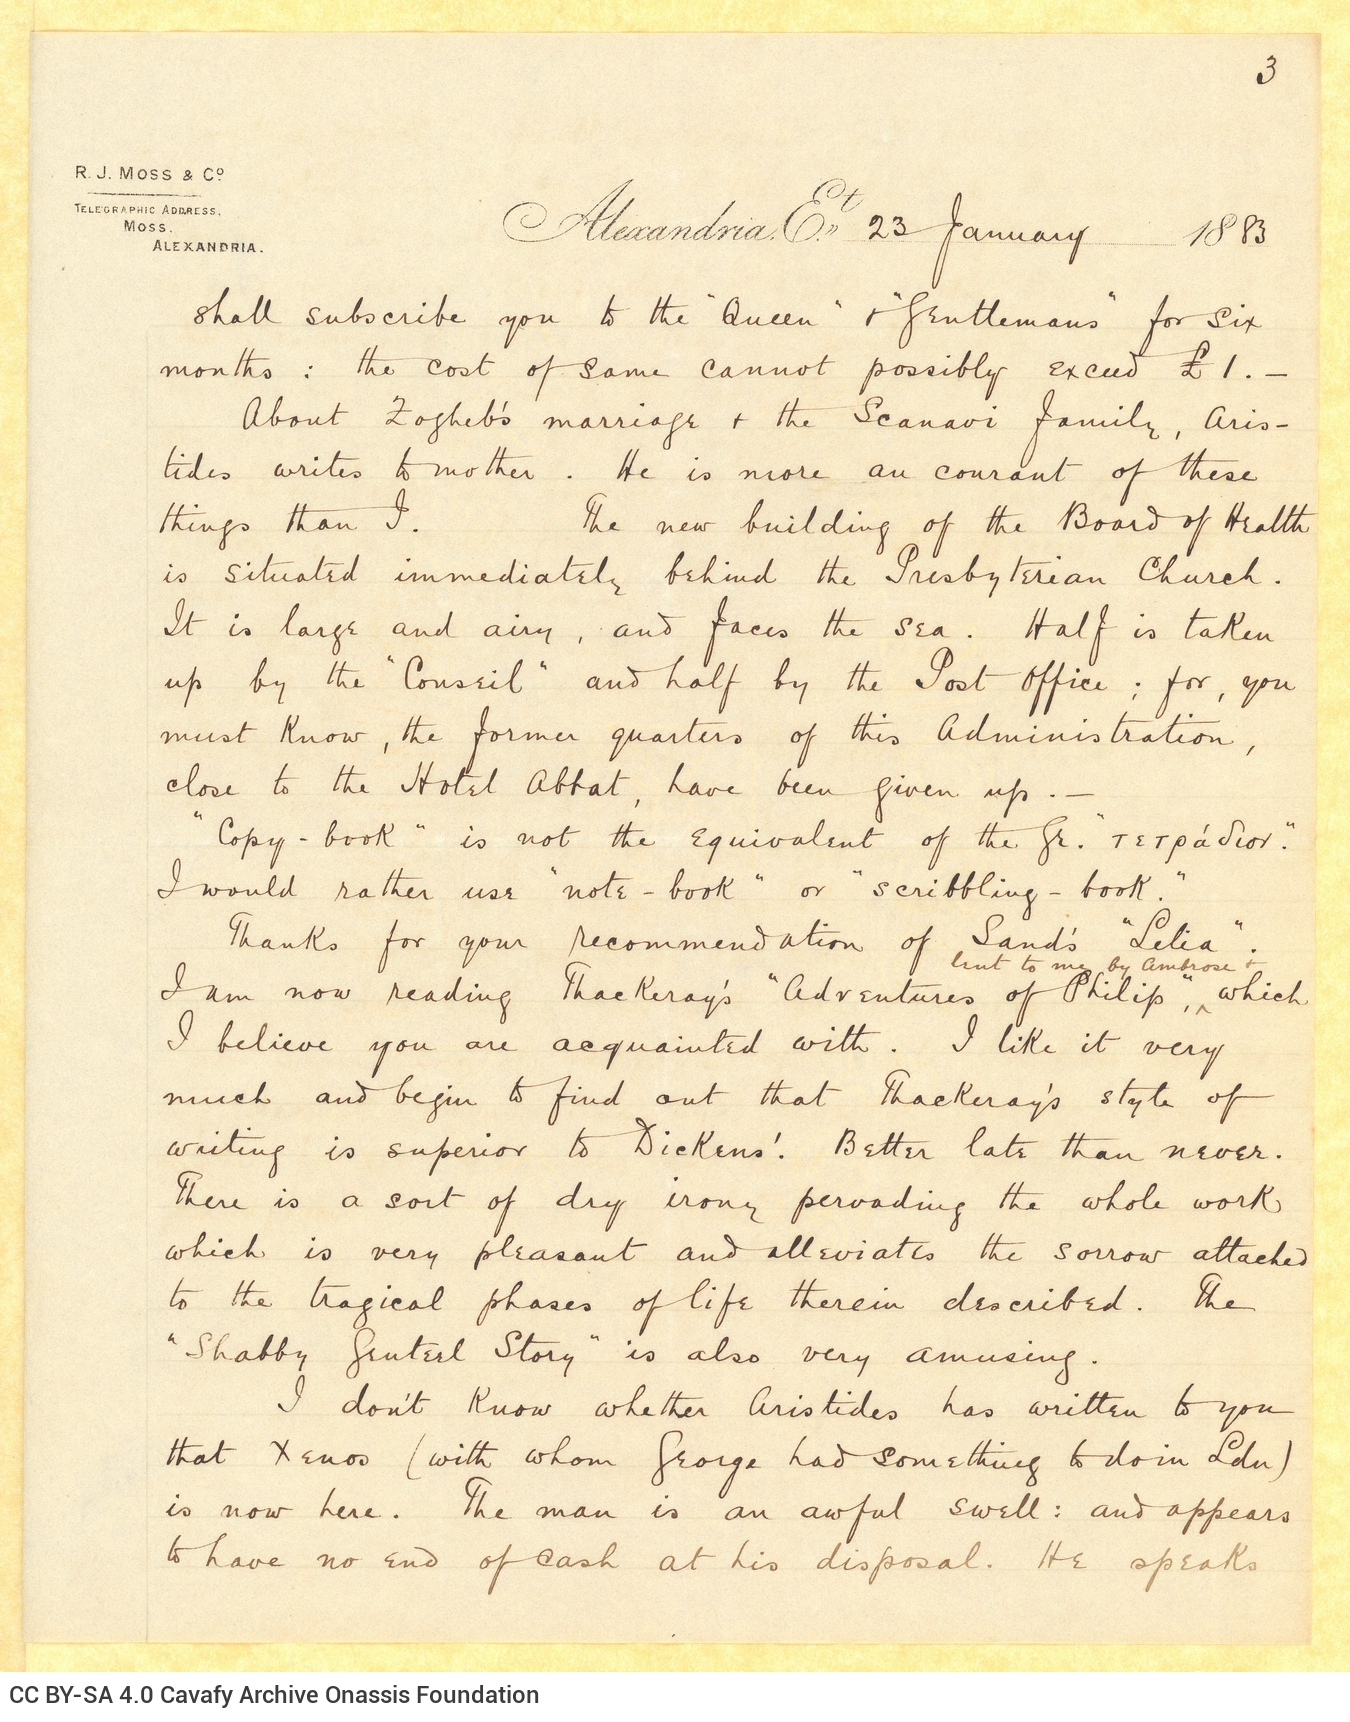 3
R. J. MOSS & Cº
TELEGRAPHIC ADDRESS,
MOSS.
ALEXANDRIA.
Alexandria. Et. 23 January 1883
shall subscribe you to the "Queen" & "Gentlemans" for six
months : the cost of same cannot possibly exceed £1. —
About Zogheb's marriage & the Scanavi family, Aris-
tides writes to mother. He is more au courant of these
things than I. The new building of the Board of Health
is situated immediately behind the Presbyterian Church.
It is large and airy, and faces the sea. Half is taken
up by the "Conseil" and half by the Post Office ; for, you
must know, the former quarters of this Administration,
close to the Hotel Abbat, have been given up. —
"Copy-book" is not the equivalent of the Gr. "τετράδιον".
I would rather use "note-book" or "scribbling-book."
Thanks for your recommendation of Sand's "Lelia".
lent to me by Ambrose &
I am now reading Thackeray's "Adventures of Philip", which
I believe you are acquainted with. I like it very
much and begin to find out that Thackeray's style of
writing is superior to Dickens'. Better late than never.
There is a sort of dry irony pervading the whole work
which is very pleasant and alleviates the sorrow attached
to the tragical phases of life therein described. The
"Shabby Genteel Story" is also very amusing.
I don't know whether Aristides has written to you
that Xenos (with whom George had something to do in Ldn)
is now here. The man is an awful swell : and appears
to have no end of cash at his disposal. He speaks
CC BY-SA 4.0 Cavafy Archive Onassis Foundation